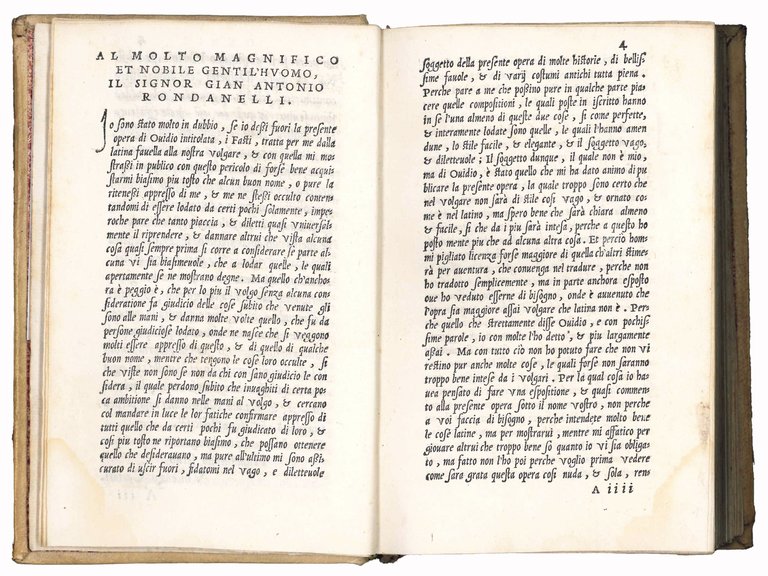 AL MOLTO MAGNIFICO
ET NOBILE GENTIL'HVOMO,
IL SIGNOR GIAN ANTONIO
RONDANELLI.
Io sono ſtato molto in dubbio, ſe io deſsi fuori la preſente
opera di Ouidio intitolata, i Faſti, tratta per me dalla
latina fauella alla noſtra volgare, & con quella mi mo
ſtraſsi in publico con queſto pericolo di forſe bene acqui
ſtarmi biaſimo piu toſto che alcun buon nome, o pure la
riteneſsi appreſſo di me, & me ne ſteſsi occulto conten-
tandomi di eſſere lodato da certi pochi ſolamente, impe-
roche pare che tanto piaccia, & diletti quaſi vniuerſal-
mente il riprendere, & dannare altrui che viſta alcuna
coſa quaſi ſempre prima ſi corre a conſiderare ſe parte al-
cuna vi ſia biaſimeuole, che a lodar quelle, le quali
apertamente ſe ne moſtrano degne. Ma quello ch'ancho-
ra è peggio è, che per lo piu il volgo ſenza alcuna con-
ſideratione fa giudicio delle coſe ſubito che venute gli
ſono alle mani, & danna molte volte quello, che fu da
perſone giudicioſe lodato, onde ne naſce che ſi veggono
molti eſſere appreſſo di queſto, & di quello di qualche
buon nome, mentre che tengono le coſe loro occulte, ſi
che viſte non ſono ſe non da chi con ſano giudicio le con
ſidera, il quale perdono ſubito che inuaghiti di certa po
ca ambitione ſi danno nelle mani al volgo, & cercano
col mandare in luce le lor fatiche confirmare appreſſo di
tutti quello che da certi pochi fu giudicato di loro, &
coſi piu toſto ne riportano biaſimo, che poſſano ottenere
quello che deſiderauano, ma pure all'ultimo mi ſono aſsi
curato di uſcir fuori, fidatomi nel vago, e diletteuole
4
ſoggetto della preſente opera di molte hiſtorie, di belliſ-
ſime fauole, & di varij coſtumi antichi tutta piena.
Perche pare a me che poſsino pure in qualche parte pia
cere quelle compoſitioni, le quali poſte in iſcritto hanno
in ſe l'una almeno di queſte due coſe, ſi come perfette,
& interamente lodate ſono quelle, le quali l'hanno amen
dune, lo ſtile facile, & elegante, & il ſoggetto vago,
& diletteuole; Il ſoggetto dunque, il quale non è mio,
ma di Ouidio, è ſtato quello che mi ha dato animo di pu
blicare la preſente opera, la quale troppo ſono certo che
nel volgare non ſarà di ſtile coſi vago, & ornato co-
me è nel latino, ma ſpero bene che ſarà chiara almeno
& facile, ſi che da i piu ſarà inteſa, perche a queſto ho
poſto mente piu che ad alcuna altra coſa. Et perciò hom
mi pigliato licenza forſe maggiore di quella ch'altri ſtime
rà per auentura, che conuenga nel tradure, perche non
ho tradotto ſemplicemente, ma in parte anchora eſpoſto
oue ho veduto eſſerne di biſogno, onde è auuenuto che
l'opra ſia maggiore aſſai volgare che latina non è. Per-
che quello che ſtrettamente diſſe Ouidio, e con pochiſ-
ſime parole, io con molte l'ho detto, & piu largamente
aſſai. Ma con tutto ciò non ho potuto fare che non vi
reſtino pur anche molte coſe, le quali forſe non ſaranno
troppo bene inteſe da i volgari. Per la qual coſa io ha
uea penſato di fare una eſpoſitione, & quaſi commen-
to alla preſente opera ſotto il nome voſtro, non perche
a voi faccia di biſogno, perche intendete molto bene
le coſe latine, ma per moſtrarui, mentre mi affatico per
giouare altrui che troppo bene ſo quanto io vi ſia obliga-
to, ma fatto non l'ho poi perche voglio prima vedere
come ſara grata queſta opera coſi nuda, & ſola, ren-
A iiii